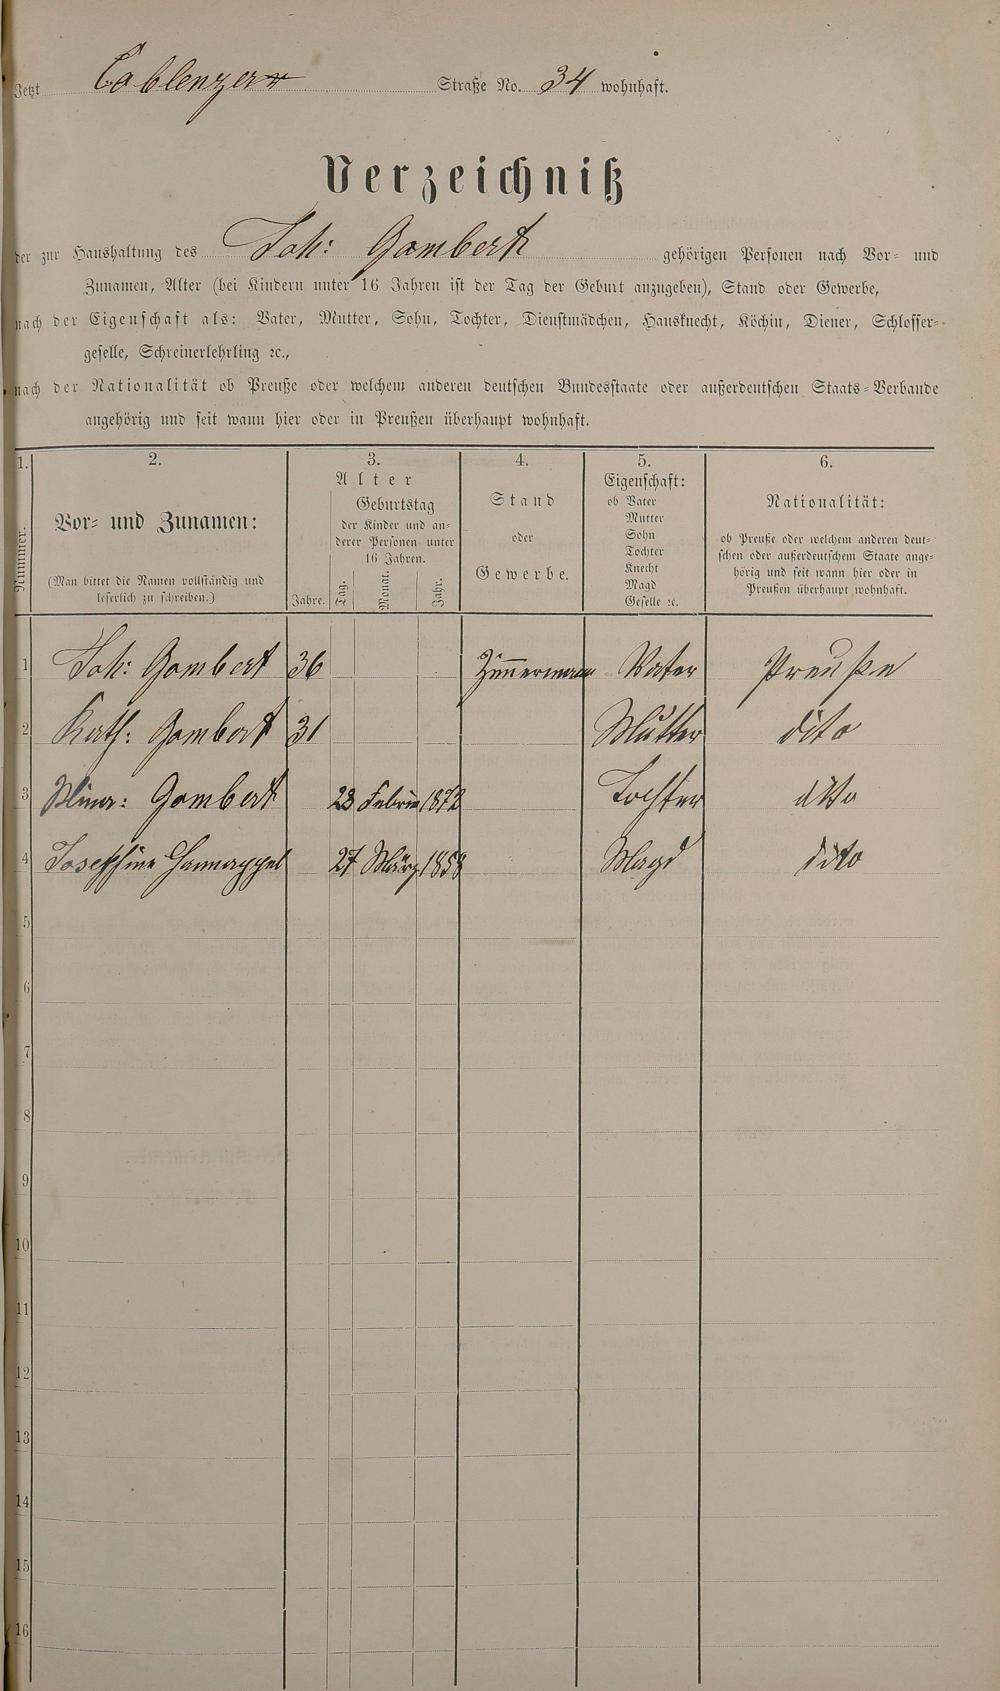 Jetzt Coblenzer Straße No. 34 wohnhaft.
Verzeichniß
der zur Haushaltung des Joh: Gombert gehörigen Personen nach Vor- und
Zunamen, Alter (bei Kindern unter 16 Jahren ist der Tag der Geburt anzugeben), Stand oder Gewerbe,
nach der Eigenschaft als: Vater, Mutter, Sohn, Tochter, Dienstmädchen, Hausknecht, Köchin, Diener, Schlosser-
geselle, Schreinerlehrling ꝛc.,
nach der Nationalität ob Preuße oder welchem anderen deutschen Bundesstaate oder außerdeutschen Staats-Verbande
angehörig und seit wann hier oder in Preußen überhaupt wohnhaft.
1. 2. 3. 4. 5. 6.
Nummer.
Vor- und Zunamen:
(Man bittet die Namen vollständig und
leserlich zu schreiben.)
Alter
Geburtstag
der Kinder und an-
derer Personen unter
16 Jahren.
Jahre. Tag. Monat. Jahr.
Stand
oder
Gewerbe.
Eigenschaft:
ob Vater
Mutter
Sohn
Tochter
Knecht
Magd
Geselle ꝛc.
Nationalität:
ob Preuße oder welchem anderen deut-
schen oder außerdeutschem Staate ange-
hörig und seit wann hier oder in
Preußen überhaupt wohnhaft.
1 Joh: Gombert 36 Zimmermann Vater Preuße
2 Kath: Gombert 31 Mutter dito
3 Mina: Gombert 23 1872 Tochter dito
4 Josephine 27 März 1858 Magd dito
5
6
7
8
9
10
11
12
13
14
15
16